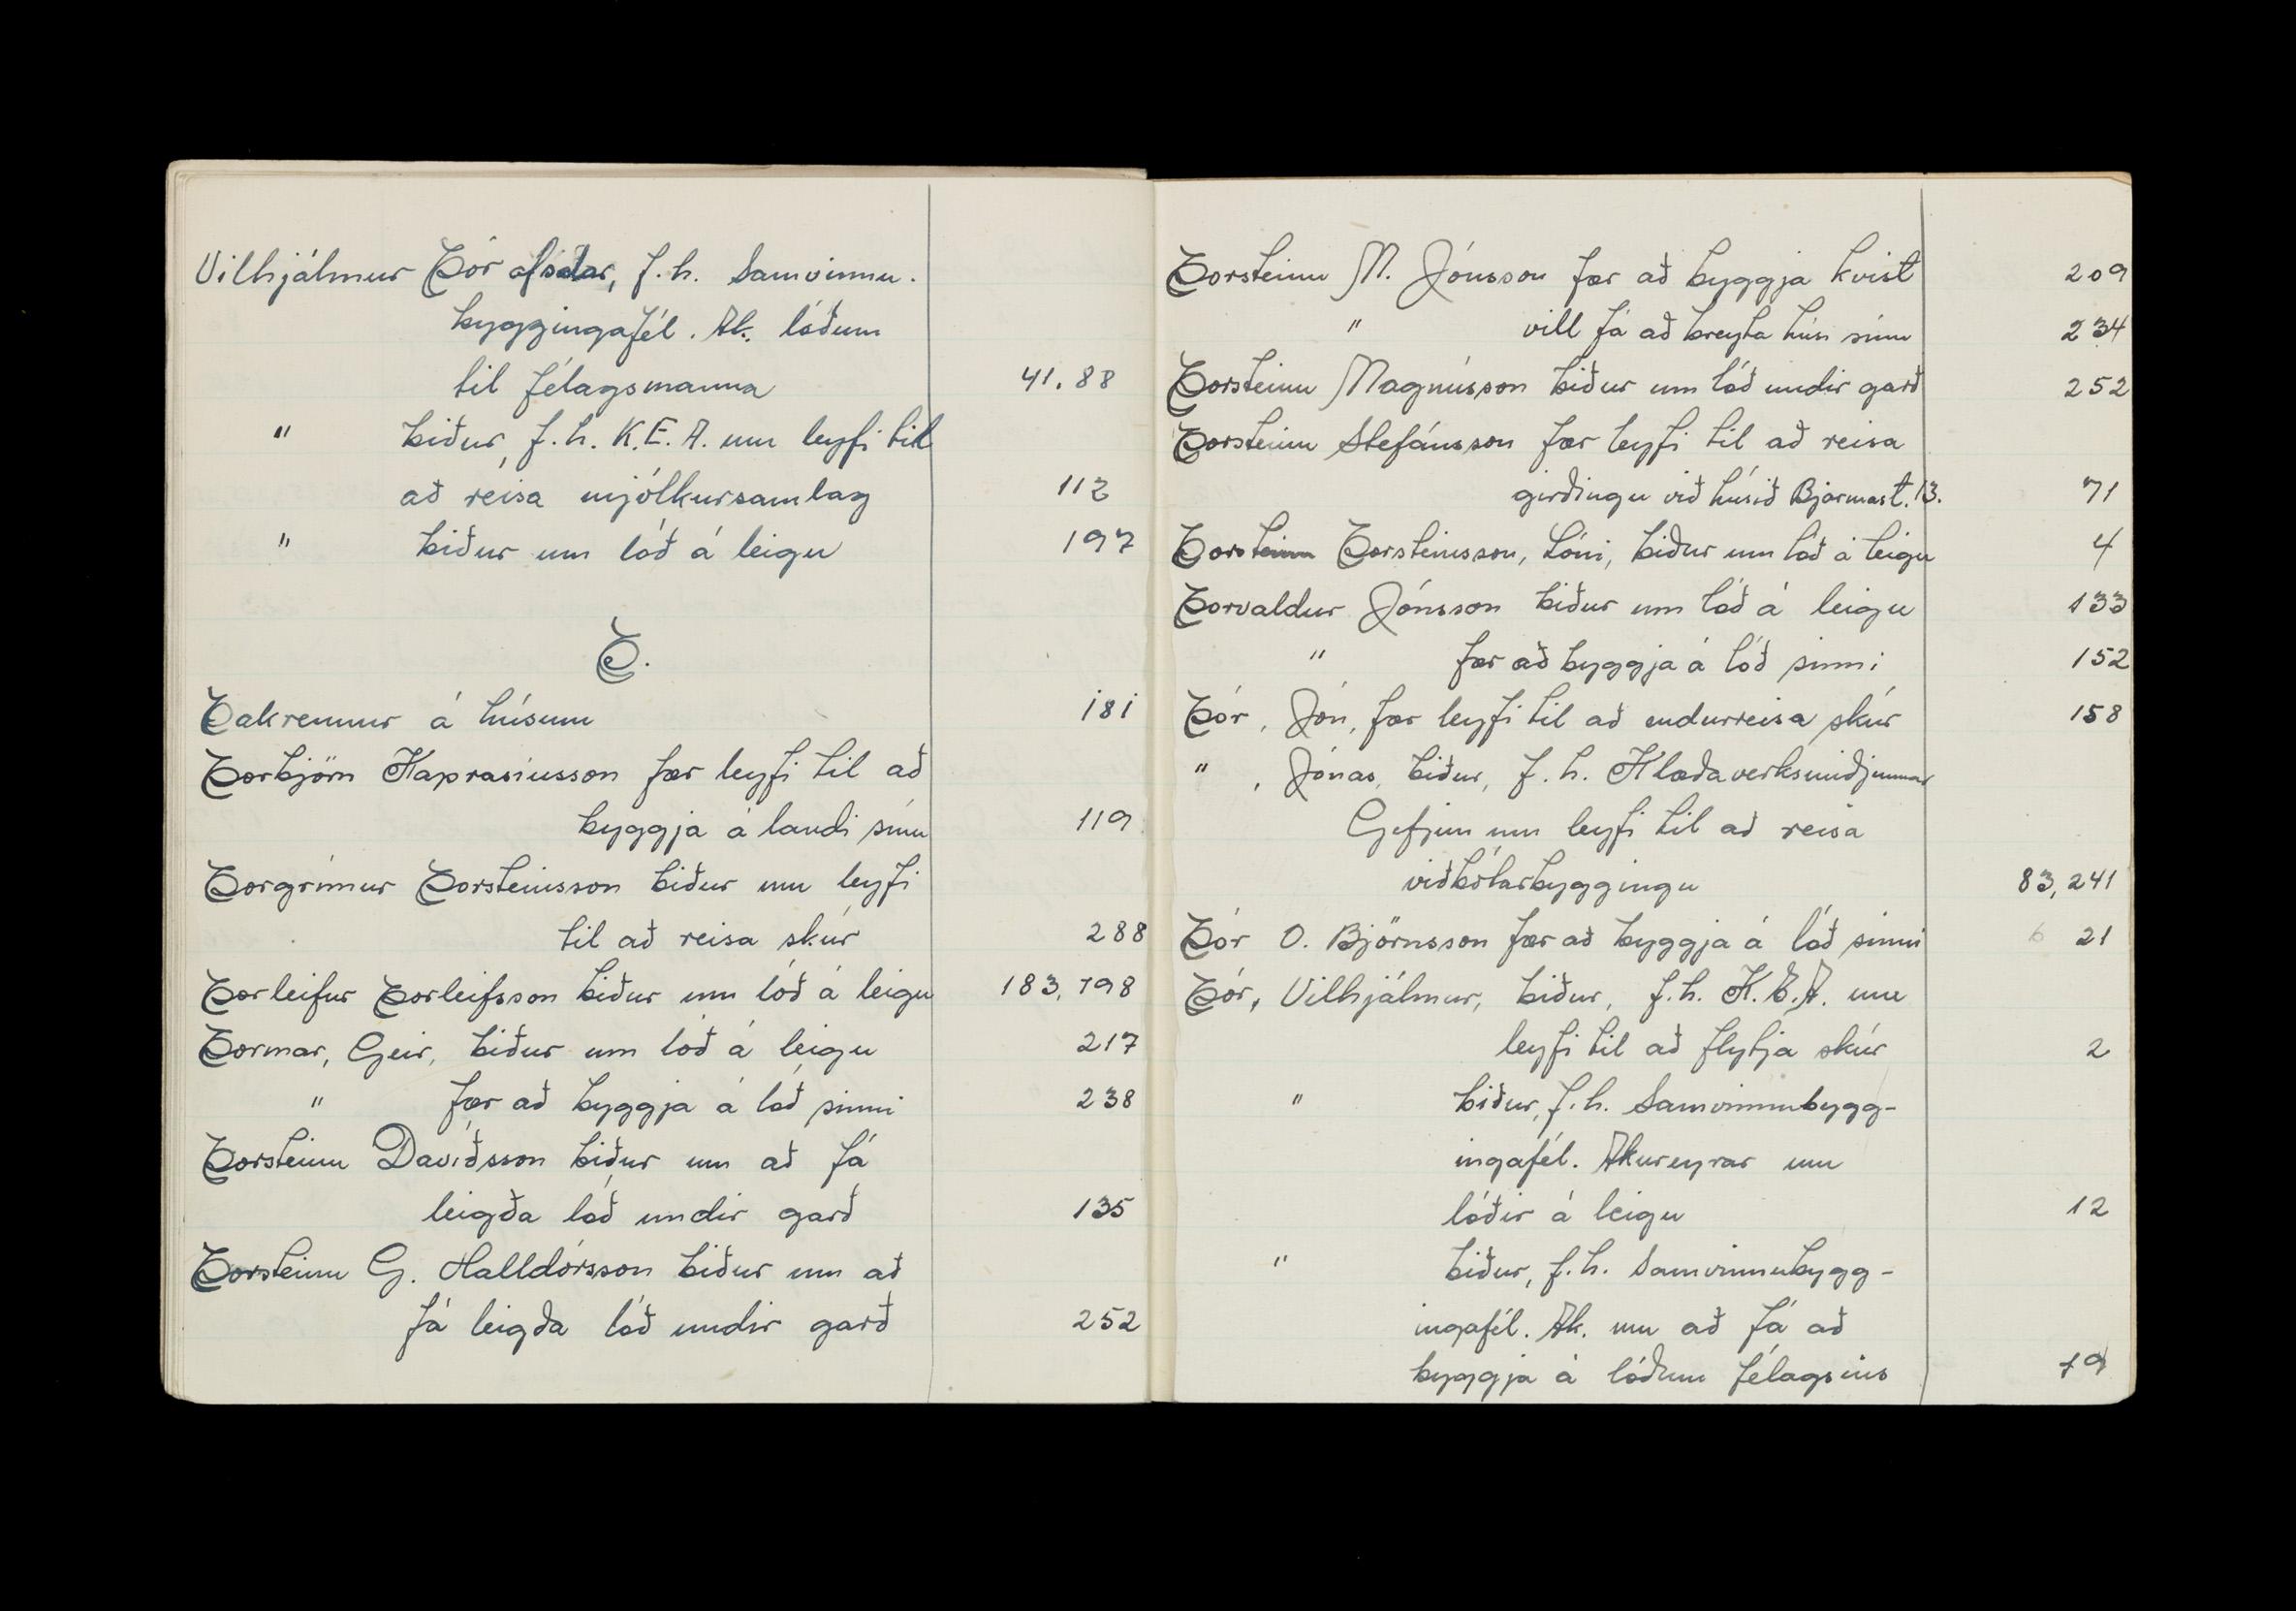 Vilhjálmur Þór afsalar, f.h. Samvinnu.
byggingafél. Ak. lóðum
til félagsmanna 41.88
" biður, f.h. K.E.A. um leyfi til
að reisa mjólkursamlag 112
" biður um lóð á leigu 197
Þ.
Þakrennur á húsum 181
Þorbjörn Kaprasiusson fær leyfi til að
byggja á landi sínu 119
Þorgrímur Þorsteinsson biður um leyfi
til að reisa skúr 288
Þorleifur Þorleifsson biður um lóð á leigu 183, 198
Þormar, Geir, biður um lóð á leigu 217
" fær að byggja á lóð sinni 238
Þorsteinn Davíðsson biður um að fá
leigða lóð undir garð 135
Þorsteinn G. Halldórsson biður um að
fá leigða lóð undir garð 252
Þorsteinn M. Jónsson fær að byggja kvist 209
" vill fá að breyta húsi sínu 234
Þorsteinn Magnússon biður um lóð undir garð 252
Þorsteinn Stefánsson fær leyfi til að reisa
girðingu við húsið Bjarmast. 13. 71
Þorsteinn Þorsteinsson, Lóni, biður um lóð á leigu 4
Þorvaldur Jónsson biður um lóð á leigu 133
" fær að byggja á lóð sinni 152
Þór, Jón, fær leyfi til að endurreisa skúr 158
" , Jónas, biður, f.h. Klæðaverksmiðjunnar
Gefjun um leyfi til að reisa
viðbótarbyggingu 83, 241
Þór O. Björnsson fær að byggja á lóð sinni 21
Þór, Vilhjálmur, biður, f.h. K.E.A. um
leyfi til að flytja skúr 2
" biður, f.h. Samvinnubygg-
ingafél. Akureyrar um
lóðir á leigu 12
" biður, f.h. Samvinnubygg-
ingafél. Ak. um að fá að
byggja á lóðum félagsins 19